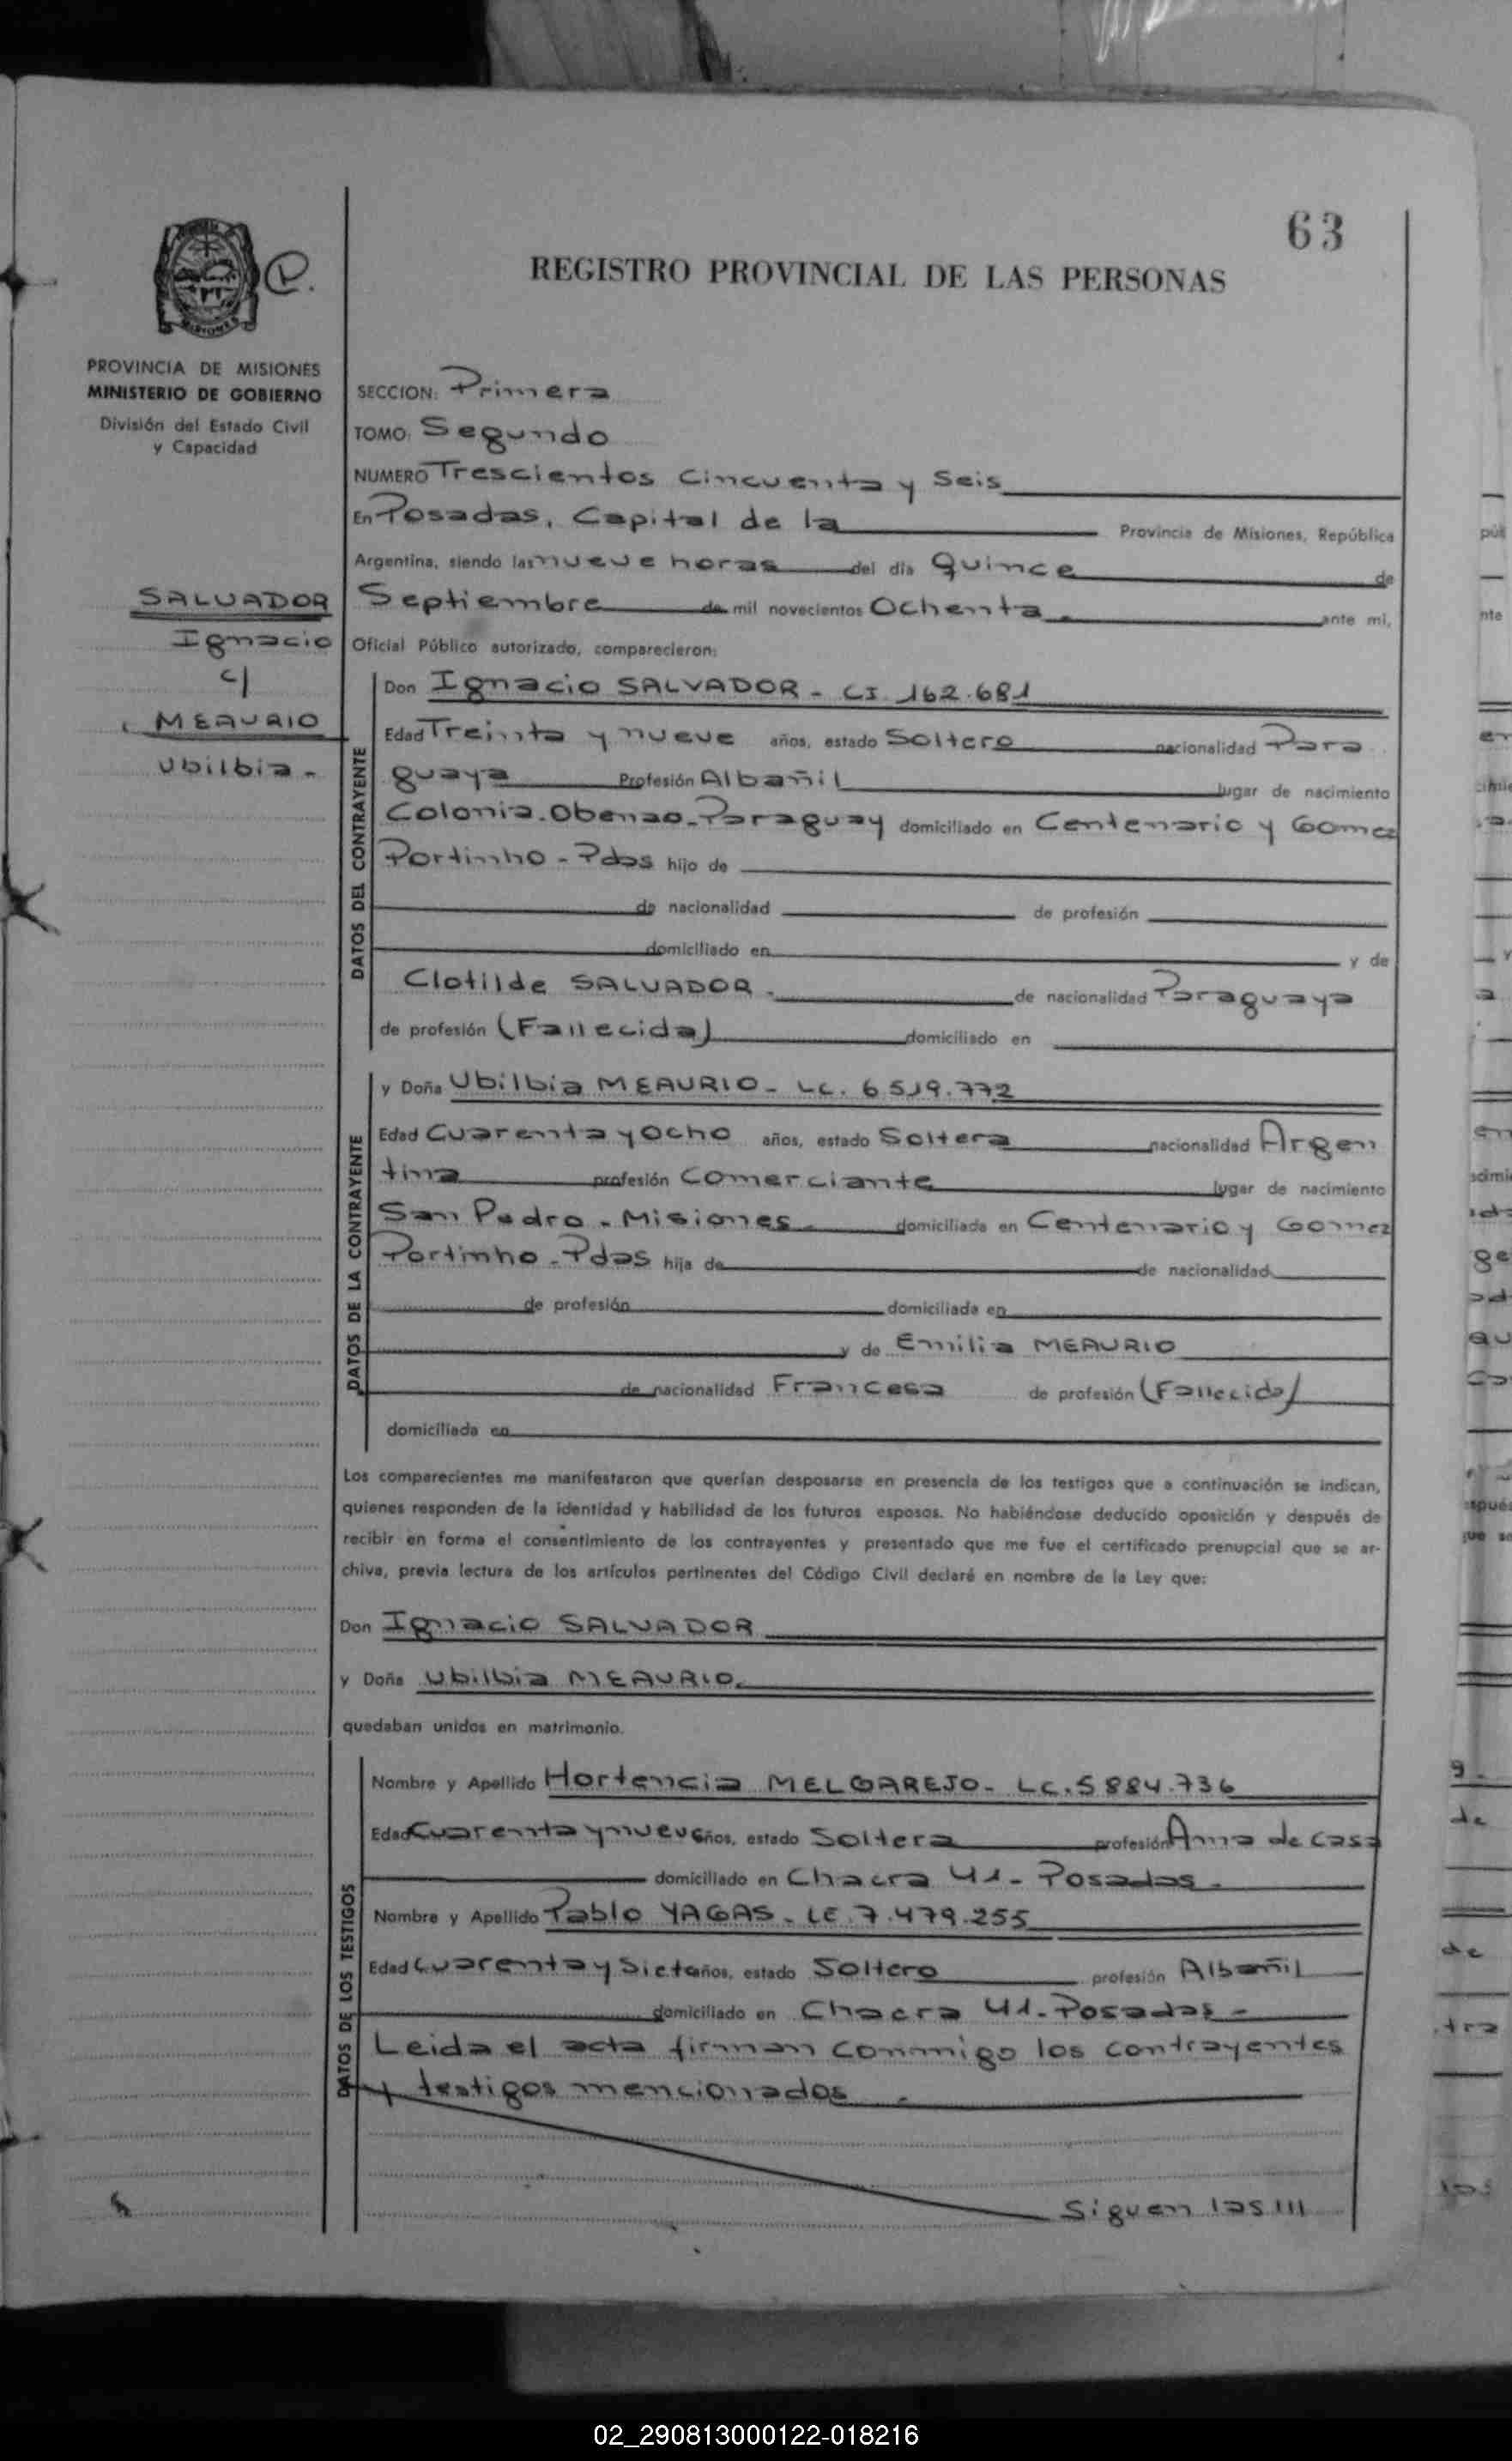 63
REGISTRO PROVINCIAL DE LAS PERSONAS
P.
MISIONES
PROVINCIA DE MISIONES
MINISTERIO DE GOBIERNO
División del Estado Civil
y Capacidad
SALVADOR
Ignacio
c/
MEAURIO
Ubilbia.-
SECCION: Primera
TOMO: Segundo
NUMERO Trescientos Cincuenta y Seis
En Posadas, Capital de la Provincia de Misiones, República
Argentina, siendo las nueve horas del día Quince de
Septiembre de mil novecientos Ochenta. ante mi,
Oficial Público autorizado, comparecieron:
DATOS DEL CONTRAYENTE
Don Ignacio SALVADOR - CI 162.681
Edad Treinta y nueve años, estado Soltero nacionalidad Para
guaya Profesión Albañil lugar de nacimiento
Colonia. Obenao. Paraguay domiciliado en Centenario y Gomez
Portinho - Pdas hijo de
de nacionalidad de profesión
domiciliado en y de
Clotilde SALVADOR. de nacionalidad Paraguaya
de profesión (Fallecida) domiciliado en
DATOS DE LA CONTRAYENTE
y Doña Ubilbia MEAURIO - LC. 6.519.772
Edad Cuarenta y Ocho años, estado Soltera nacionalidad Argen
tina profesión Comerciante lugar de nacimiento
San Pedro - Misiones. domiciliada en Centenario y Gomez
Portinho - Pdas hija de de nacionalidad
de profesión domiciliada en
y de Emilia MEAURIO
de nacionalidad Francesa de profesión (Fallecida)
domiciliada en
Los comparecientes me manifestaron que querían desposarse en presencia de los testigos que a continuación se indican,
quienes responden de la identidad y habilidad de los futuros esposos. No habiéndose deducido oposición y después de
recibir en forma el consentimiento de los contrayentes y presentado que me fue el certificado prenupcial que se ar-
chiva, previa lectura de los artículos pertinentes del Código Civil declaré en nombre de la Ley que:
Don Ignacio SALVADOR
y Doña Ubilbia MEAURIO.
quedaban unidos en matrimonio.
DATOS DE LOS TESTIGOS
Nombre y Apellido Hortencia MELGAREJO - LC. 5884.736
Edad Cuarenta y nueve años, estado Soltera profesión Ama de Casa
domiciliado en Chacra 41 - Posadas.
Nombre y Apellido Pablo YAGAS - LE. 7.479.255
Edad Cuarenta y Siete años, estado Soltero profesión Albañil
domiciliado en Chacra 41 - Posadas -
Leida el acta firman conmigo los contrayentes
y testigos mencionados.
Siguen las ///
02_290813000122-018216